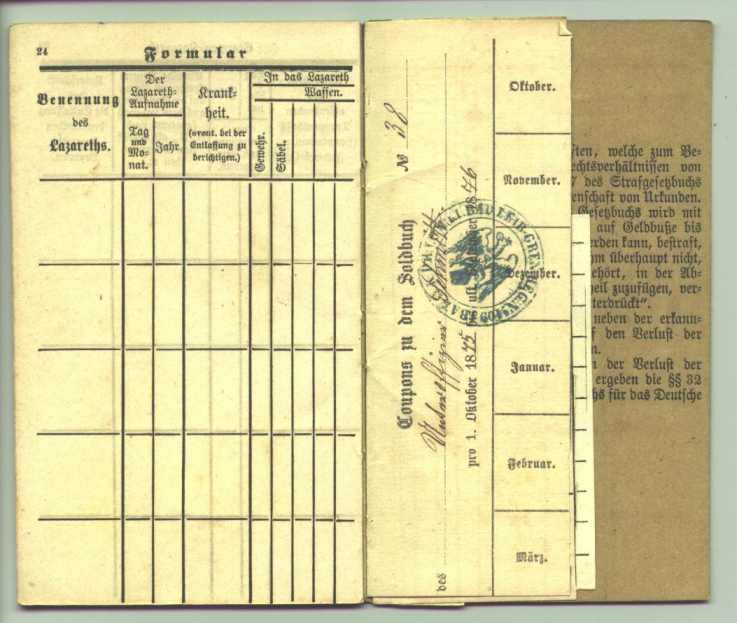 24
Formular
Benennung
des
Lazareths.
Der
Lazareth-
Aufnahme
Tag
und
Mo-
nat.
Jahr.
Krank-
heit.
(event. bei der
Entlassung zu
berichtigen.)
In das Lazareth
Waffen.
Gewehr.
Säbel.
Coupons zu dem Soldbuch № 38
des Unteroffizier
pro 1. Oktober 1875 ult. 1876
BAD. LEIB-GREN
Oktober.
November.
Dezember.
Januar.
Februar.
März.
ften, welche zum Be-
echtsverhältnissen von
7 des Strafgesetzbuchs
enschaft von Urkunden.
Gesetzbuchs wird mit
auf Geldbuße bis
erden kann, bestraft,
hm überhaupt nicht,
gehört, in der Ab-
heil zuzufügen, ver-
terdrückt".
neben der erkann-
f den Verlust der
n.
n der Verlust der
ergeben die §§ 32
hs für das Deutsche